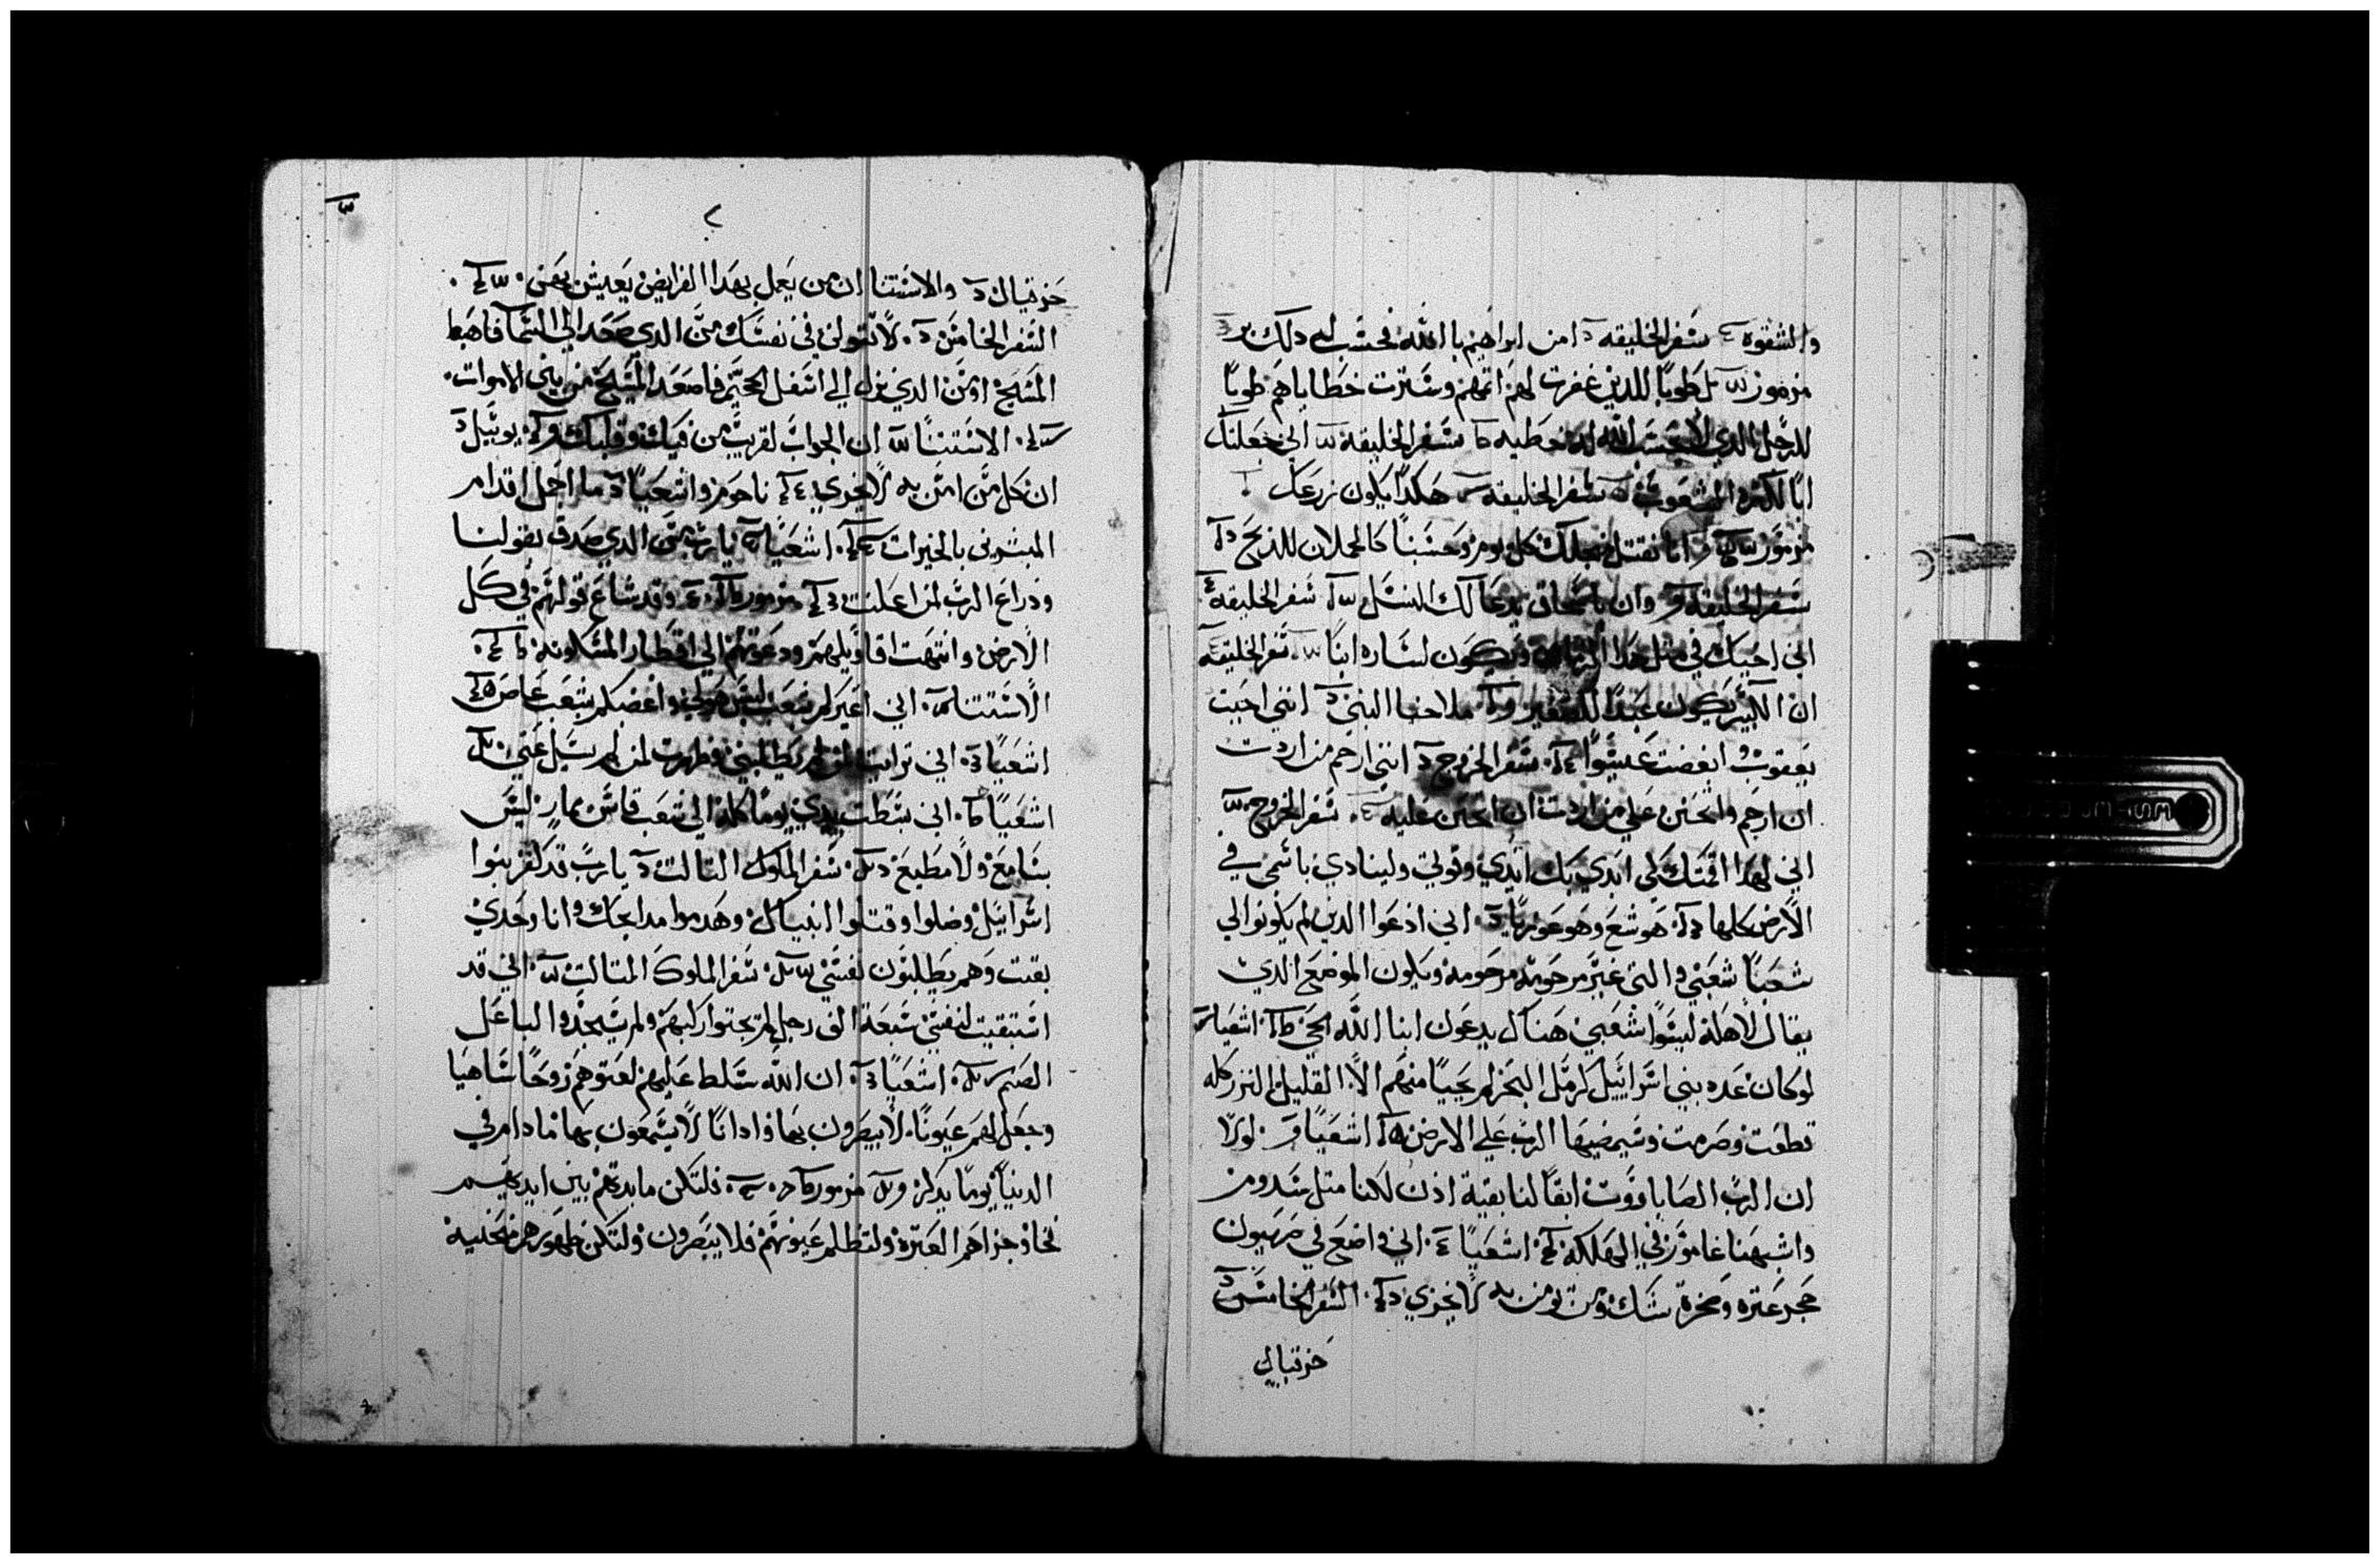 والشقوه سفر الخليقه امن ابراهيم بالله فحسب له دلك بر
مزمور طوبا للدين غفرت لهم اتمهم وسترت خطاياهم طوبا
للرجل الدي لا يحسب الله له خطيه سفر الخليقه اني جعلتك
ابا لكثرة الشعوب سفر الخليقه هكدا يكون زرعك
مزمور انا نقتل من اجلك كل يوم وحسبنا كالحملان للدبح
سفر الخليقه وان باسحاق يدعا لك النسل سفر الخليقه
اني اجيك في مثل هدا ويكون لساره ابنا سفر الخليقه
ان الكبير يكون عبدا للصغير ملاخيا النبي انني احببت
يعقوب وابغضت عيسوا سفر الخروج انني ارحم من اردت
ان ارحم واتحنن علي من اردت ان اتحنن عليه سفر الخروج
اني لهدا اقمتك لكي ابدي بك ايدي وقوتي ولينادي باسمي في
الارض كلها هوشع وهو عوزيا اني ادعوا الدين لم يكونوا لي
شعبا شعبي والتي غير مرحومه مرحومه ويكون الموضع الدي
يقال لاهله ليسوا شعبي هناك يدعون ابنا الله الحي اشعيا
لو كان عدد بني اسراييل كرمل البحر لم يحيا منهم الا القليل النزر كله
قطعت وصرمت وسيمضيها الرب علي الارض اشعيا لولا
ان الرب الصاباووت ابقا لنا بقية ادن لكنا مثل سدوم
واشبهنا غامورا في الهلكه اشعيا اني واضع في صهيون
حجر عتره وصخرة شك ومن يومن به لا يخزي السفر الخامس
حزقيال
٢
حزقيال والاستتنا ان من يعمل بهدا الفرايض يعيش بهن
السفر الخامس لا تقولن في نفسك من الدي صعد الي السما فاهبط
المسيح او من الدي نزل الي اسفل الجحيم فاصعد المسيح من بين الاموات
الاستتنا ان الجواب لقريب من فيك وقلبك يوئيل
ان كل من امن به لا يخزي ناحوم واشعيا ما اجمل اقدام
المبشرين بالخيرات اشعيا يا رب من الدي صدق بقولنا
ودراع الرب لمن اعلنت مزمور وقد شاع قولهم في كل
الارض وانتهت اقاويلهم ودعوتهم الي اقطار المسكونه
الاستتنا اني اغيركم بشعب ليس هو لي واغضبكم بشعب عاص
اشعيا اني ترايت لمن لم يطلبني وظهرت لمن لم يسل عني
اشعيا اني بسطت يدي يوما كله الي شعب قاس ليس
بسامع ولا مطيع سفر الملوك التالت يا رب قد كفر بنوا
اسراييل وضلوا وقتلوا انبياك وهدموا مدابحك وانا وحدي
بقيت وهم يطلبون نفسي سفر الملوك التالت اني قد
استبقيت لنفسي سبعة الف رجل لم يجتوا ركبهم ولم يسجدوا لباعل
الصنم اشعيا ان الله سلط عليهم لعتوهم روحا ساهيا
وجعل لهم عيونا لا يبصرون بها وادانا لا يسمعون بها ما دام في
الدنيا يوما يدكر مزمور فلتكن مايدتهم بين ايديهم
فخا وجزاهم العترة ولتظلم عيونهم فلا يبصرون ولتكن ظهورهم منحنية